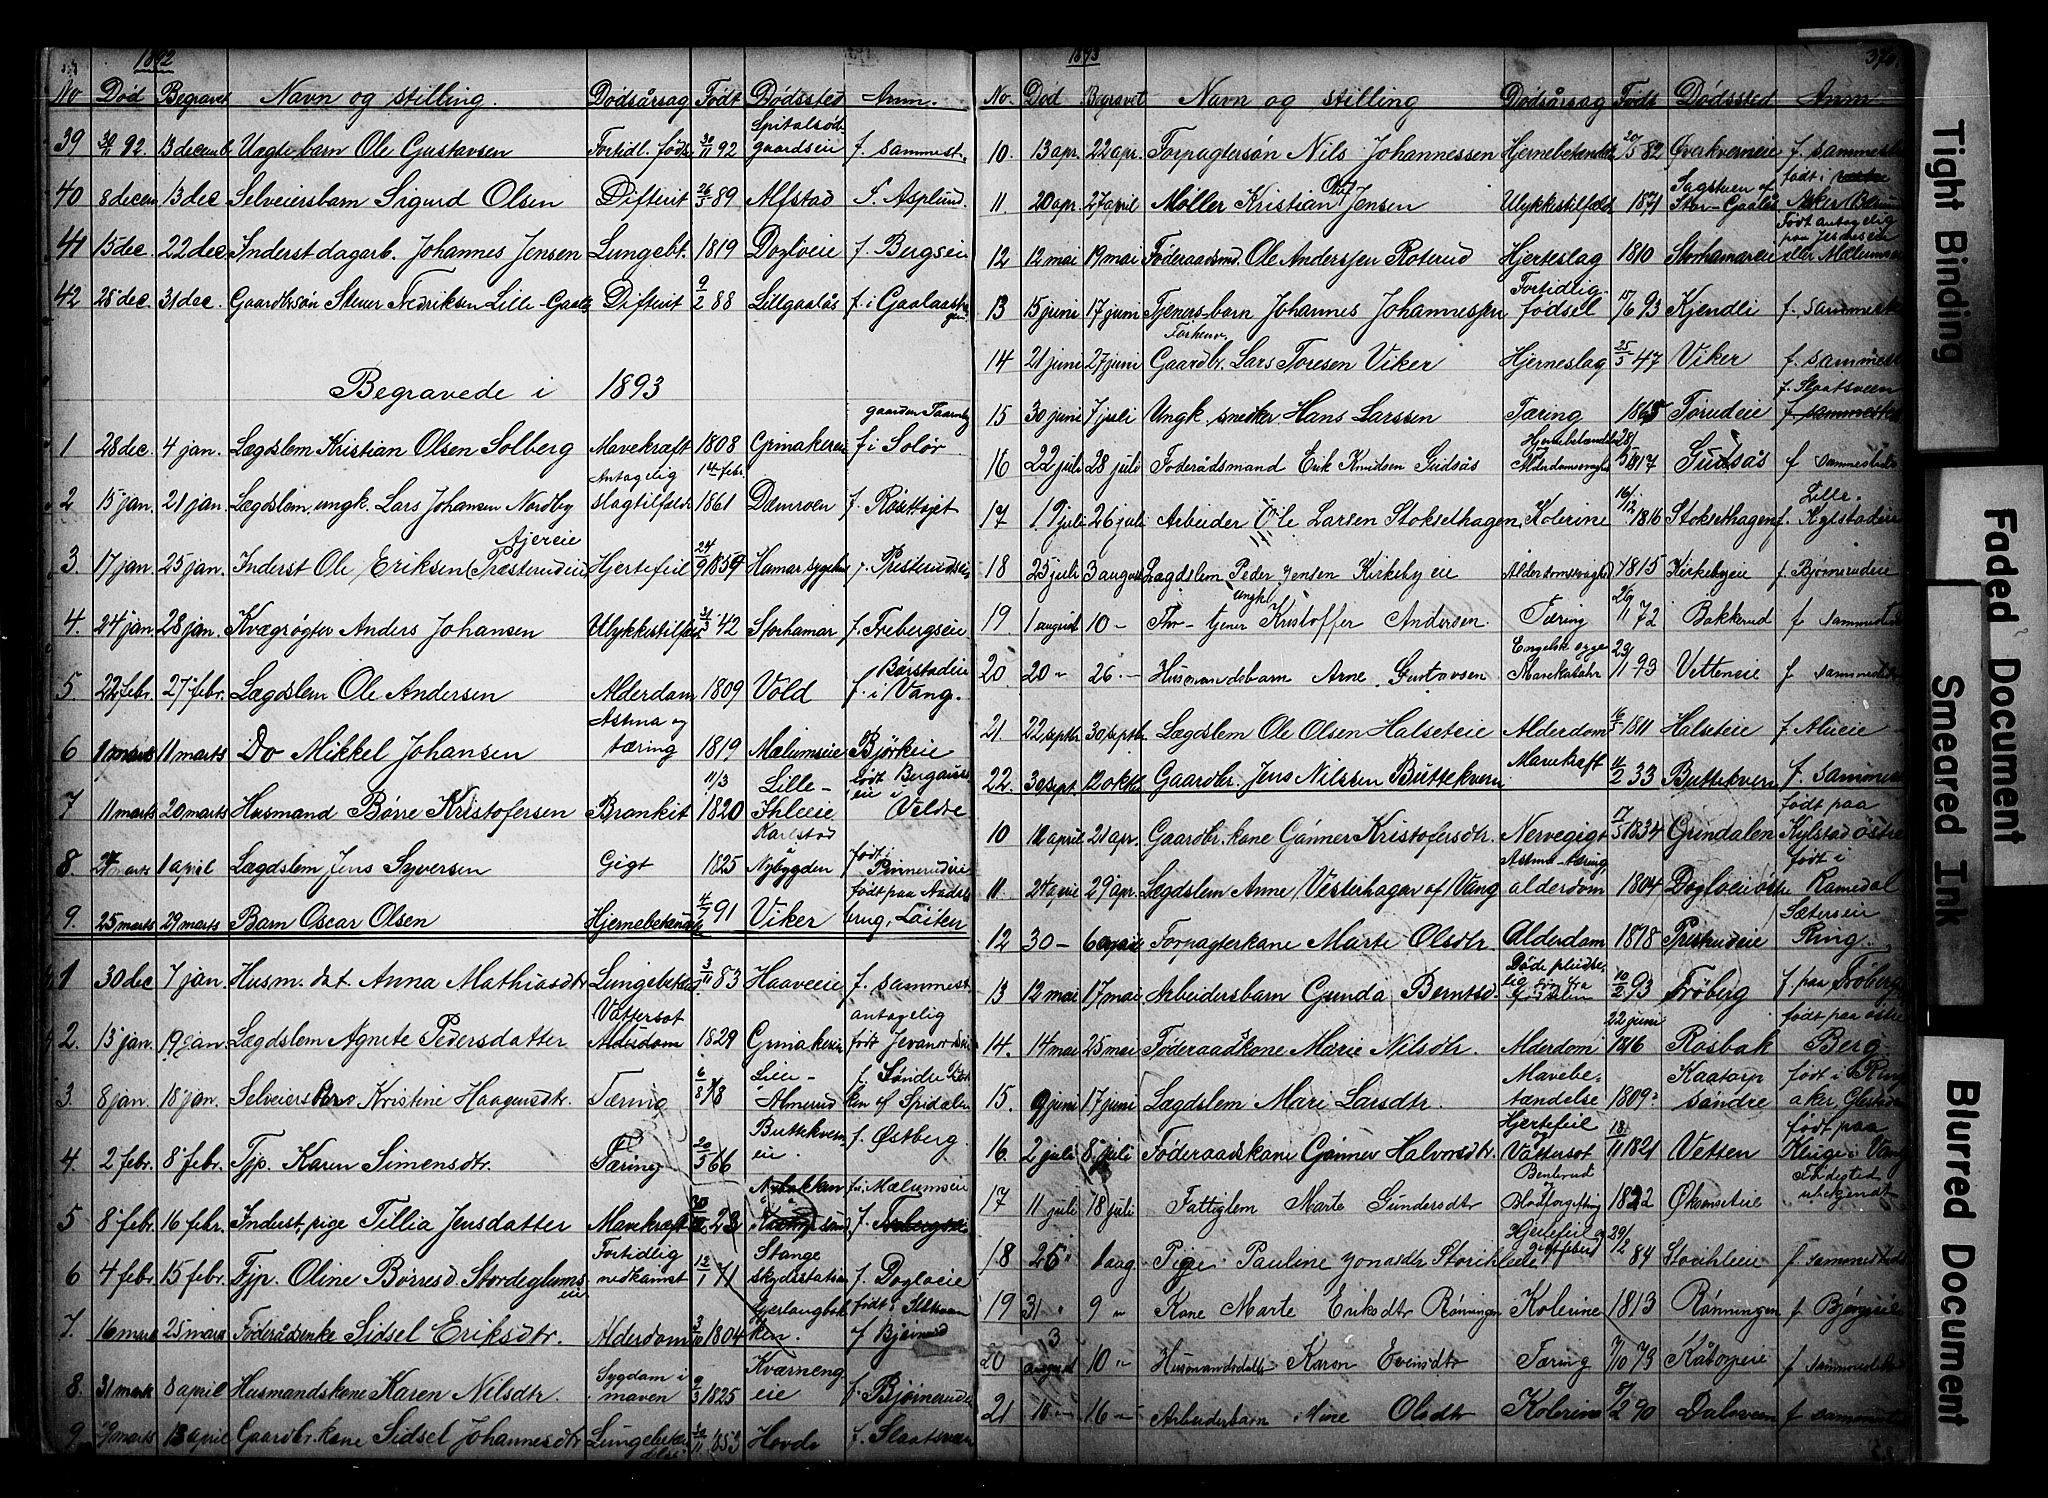 1892
No Død Begravet Navn og stilling. Dødsårsag Født Dødssted Anm.
39 30/11 92. 13 decemb. Uægte barn Ole Gustavsen Fortidl. føds. 30/11 92 Spitalsødegaardseie f. sammest.
40 8 decem 13 dec Selveiersbarn Sigurd Olsen Difterit 26/5 89 Alfstad f. Asplund.
41 15 dec. 22 dec Inderst dagarb. Johannes Jensen Lungebt. 1819 Dogloeie f. Bergseie
42 28 dec. 31 dec. Gaardbrsøn Stener Fredriksen Lille-Gaalås Difterit 9/2 88 Litlgaalås f. i Gaalaas
Begravede i 1893
1 28 dec. 4 jan. Lægdslem Kristian Olsen Solberg Mavekræft 1808 Grinakereie gaarden f. i Solør
2 15 jan. 21 jan. Lægdslem, ungk. Lars Johansen Nordby Antagelig slagtilfælde 14 febr. 1861 Dæmroen f. Røsthøjet
3. 17 jan. 25 jan. Inderst Ole Eriksen (Præsterudeie Ajereie Hjertefeil 24/9 1859 Hamar sygehus f. Pristerudseie
4. 24 jan 28 jan. Kvægrøgter Anders Johansen Ulykkestilfælde 31/5 42 Storhamar f. Frebergseie
5 22 febr. 27 febr. Lægdslem Ole Andersen Alderdom 1809 Vold f. Børstadeie i Vang.
6 1 marts 11 marts Do Mikkel Johansen Astma og tæring 1819 Mælumseie Bjørkeie
7 11 marts 20 marts Husmand Børre Kristofersen Bronkit 11/3 1820 Lille-Ihleeie født Bergauseie i Veldre
8. 27 marts 1 april Lægdslem Jens Syversen Gigt 1825 Karlstad å Nybygden født i Finnerudeie
9. 25 marts 29 marts Barn Oscar Olsen Hjernebetænd 4/7 91 Viker født paa Aadals brug, Løiten
1 30 dec 7 jan. Husm. dat. Anna Mathiasdtr Lungebetæd. 3/11 83 Haaveeie f. sammest.
2. 15 jan. 19 jan. Lægdslem Agnete Pedersdatter Vattersot Alderdom 1829 Grinakereie antagelig født
3. 8 jan. 18 jan. Selveiers Kristine Haagensdtr. Tæring 6/8 78 Lille-Almerud f. Søndre
4. 2 febr. 8 febr. Tjp. Karen Simensdtr. Tæring 20/5 66 Buttekverneie. f. Østberg.
5 8 febr. 16 febr. Inderst, pige Tillia Jensdatter Mavekræft 23 Nybakken f. i Mælumseie
6 4 febr. 15 febr. Tjp. Oline Børresd. Stordeglumseie Fortidlig nedkomst 12/1 71 Stange skydsstation f. Dogloeie
7. 16 marts 25 mars Føderådsenke Sidsel Eriksdtr. Alderdom 3/10 1804 Gjerlaugbakken. født i f. Bjørnerud
8. 31 marts 8 april Husmandskone Karen Nilsdtr. Sygdom i maven 9/3 1825 Kværnengeie f. Bjørnerudeie
9 30 marts 13 april Gaardbr. kone Sidsel Johannesdtr Lungebetændelse 30/11 1853 Hovde f. Slaatsveen
1893 370.
No. Død Begravet Navn og stilling Dødsårsag Født Dødssted Anm
10. 13 apr. 22 apr. Forpagtersøn Nils Johannessen Hjernebetændelse 20/5 82 Øverkverneie f. sammested
11. 20 apr. 27 april Møller Kristian Olaf Jensen Ulykkestilfælde 1871 Sagstuen af Stor-Gaalås født i Asker Bærum
12 12 mai 19 mai Føderaadsmd. Ole Anderssen Roterud Hjerteslag 1810 Storhamareie Født antagelig paa Jesneseie eller Mælumseie
13 15 juni 17 juni Tjeners-barn Johannes Johannessen Fortidlig-fødsel 15/6 93 Kjendli f. sammested
14 21 juni 27 juni Forhenv. Gaardbr. Lars Toresen Viker Hjerneslag 25/5 47 Viker f. sammested
15 30 juni 7 juli Ungk. snedker Hans Larssen Tæring 1865 Torudeie f. Slaatsveen f. sammested
16 22 juli 28 juli Føderådsmand Erik Knudsen Gudsås Hjernebetændelse og Alderdomssvaghed 28/5 1817 Gudsås f sammesteds
17 19 juli 26 juli Arbeider Ole Larsen Stokselhagen Kolerine 16/12 1816 Stokselhagen f. Lille-Kylstadeie
18 25 juli 3 august Lægdslem Peder Jensen Kirkebyeie Alderdomssvaghed 1815 Kirkebyeie f. Bjørnerudeie
19. 1 august 10 – Ungk. tjener Kristoffer Andersen. Tæring 26/11 72 Bakkerud f sammesteds
20 20 " 26. – Husmandsbarn Arne Gustavsen Engelsk syge Mavekatahr 23/11 93 Vetteneie f sammesteds
21. 22 septbr. 30 septbr. Lægdslem Ole Olsen Halseteie Alderdom 16/5 1811 Halseteie f. Alueie
22. 30 sept. 12 oktbr. Gaardbr. Jens Nilssen Buttekvern Mavekræft 4/2 33 Buttekvern f. sammested
10 12 april 21 apr. Gaardbr. kone Gunner Kristofersdtr. Nervegigt 17/5 1834 Grindalen født paa Kylstad østre
11. 24 april 29 apr. Lægdslem Anne Vesterhagen af Vang Astma-tæring, alderdom 1804 Dogloeie født i Romedal
12 30 – 6 mai Forpagterkone Marte Olsdtr Alderdom 1818 Pristrudeie Sæterseie Ring.
13 12 mai 17 mai Arbeidersbarn Gunda Berntsd. Døde pludselig 10/2 93 Frøberg f. paa Frøberg
14. 14 mai 25 mai Føderaadskone Marie Nilsdtr. Alderdom 22 juni 1816 Rosbak født paa østre Berg
15. 9 juni 17 juni Lægdslem Mari Larsdtr. Mavebetændelse 1809. Kaatorp søndre født i Ringsaker
16. 2 juli 8 juli Føderaadskone Gunner Halvorsdtr. Hjertefeil og Vattersot 18/11 1821 Vetten født paa Kluge i Vang
17 11 juli 18 juli Fattiglem Marte Gundersdtr Benbrud Blodforgiftning 1822 Øksenseteie Fødested ubekjendt
18 26 " 1 aug Pige Pauline Jonasdtr Storihleeie Hjertefeil og Gigtfeber 29/2 84 Storihleeie f. sammesteds
19 31 " 9 " Kone Marte Eriksdtr Rønningen Kolerine 1813 Rønningen f
20 3 august 10 " Husmandsdatter Karen Evensdtr Tæring 7/10 73 Kåtorpeie f sammesteds
21 10 – 16 – Arbeiderbarn Mine Olsdtr Kolerine 8/2 90 Dalsveen f sammested